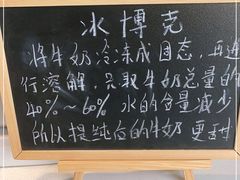 冰博克
将牛奶冷冻成固态，再进
行溶解，只取牛奶总量的
40%～60% 水的含量减少
所以提纯后的牛奶 更甜